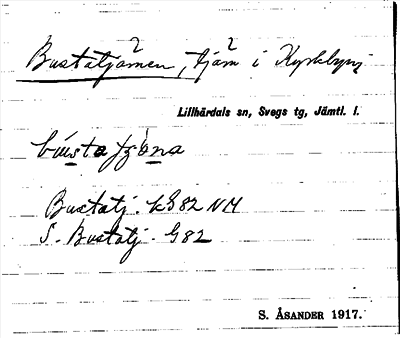 Bustatjärnen, tjärn i Kyrkbyn
Lillhärdals sn, Svegs tg, Jämtl. l.
Bustatj. kG82 NM
S. Bustatj. G82
S. ÅSANDER 1917.